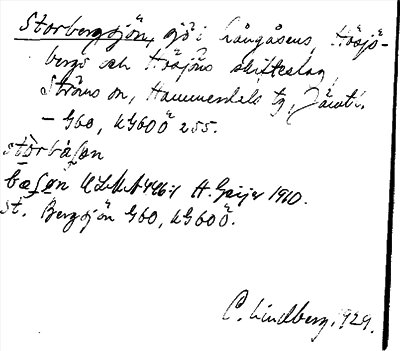 Storbergsjön, sjö i Långåsens, Höjsjö-
bergs och Höjsjöns skifteslag,
Ströms sn, Hammerdals tg, Jämtl.
- G60, KG600Ö 255.
stòrbà̤ʃøn
bæʃøn ULMA 446:1 H. Geijer 1910.
St. Bergsjön G60, KG600Ö.
C. Lindberg, 1929.